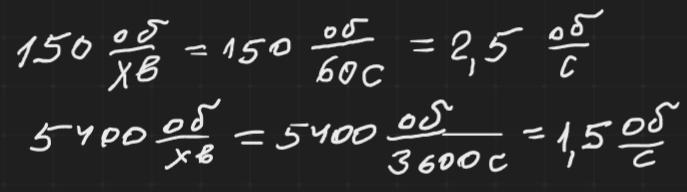 150 об/хв = 150 об/60с = 2,5 об/с
5400 об/хв = 5400 об/3600с = 1,5 об/с